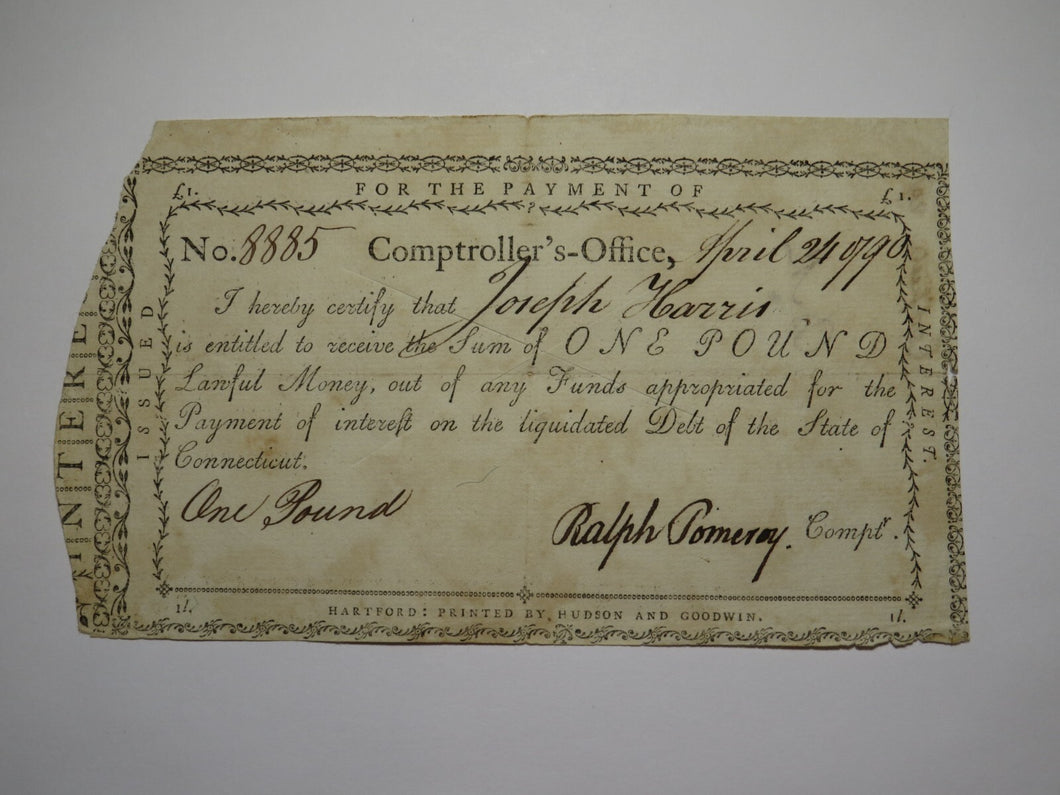 £1. FOR THE PAYMENT OF £1.
No. 8885 Comptroller's-Office, April 24 1790
I hereby certify that Joseph Harris
is entitled to receive the Sum of ONE POUND
Lawful Money, out of any Funds appropriated for the
Payment of interest on the liquidated Debt of the State of
Connecticut.
One Pound
Ralph Pomeroy. Comptr.
1l. HARTFORD: PRINTED BY HUDSON AND GOODWIN. 1l.
ISSUED
INTEREST.
INTERE